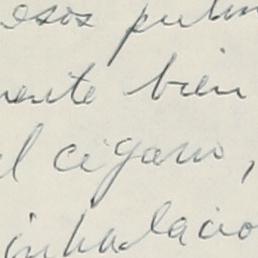 esos pulm
mente bien
el cigarro,
inhalacio